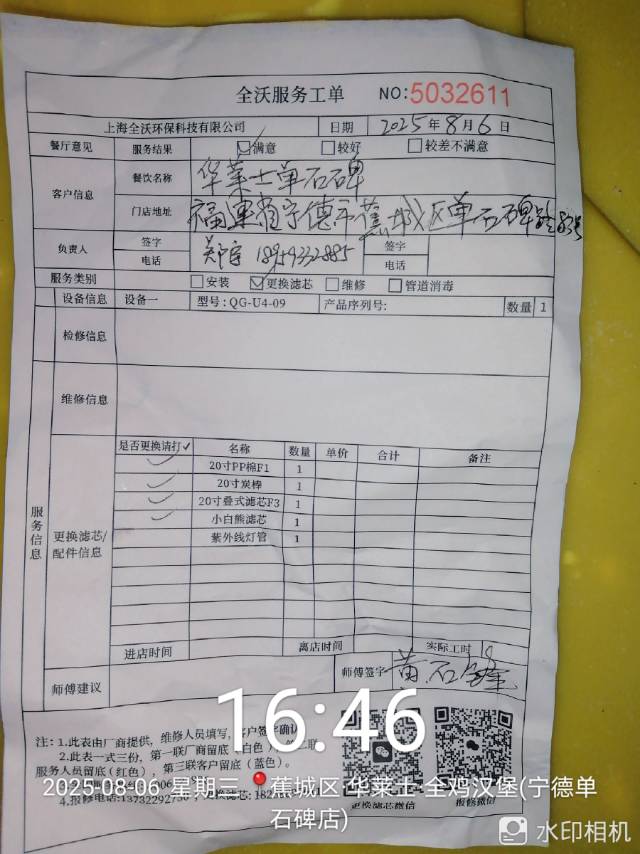 全沃服务工单 NO:5032611
上海全沃环保科技有限公司 日期 2025年8月6日
餐厅意见 服务结果 ☑满意 □较好 □较差不满意
客户信息 餐饮名称 华莱士单石碑
门店地址 福建省宁德市蕉城区单石碑路83号
负责人 签字 郑 签字
电话 18959332885 电话
服务类别 □安装 ☑更换滤芯 □维修 □管道消毒
服务信息
设备信息 设备一 型号:QG-U4-09 产品序列号: 数量 1
检修信息
维修信息
更换滤芯/配件信息
是否更换请打✓ 名称 数量 单价 合计 备注
✓ 20寸PP棉F1 1
✓ 20寸炭棒 1
✓ 20寸叠式滤芯F3 1
✓ 小白熊滤芯 1
紫外线灯管 1
进店时间 离店时间 实际工时
师傅建议 师傅签字 黄石
16:46
注:1.此表由厂商提供,维修人员填写,客户签字确认
2.此表一式三份,第一联厂商留底(白色)
服务人员留底(红色),第三联客户留底(蓝色)。
2025-08-06 星期三 蕉城区·华莱士·全鸡汉堡(宁德单石碑店)
4.报修电话:13732292730
更换滤芯微信 报修微信
水印相机